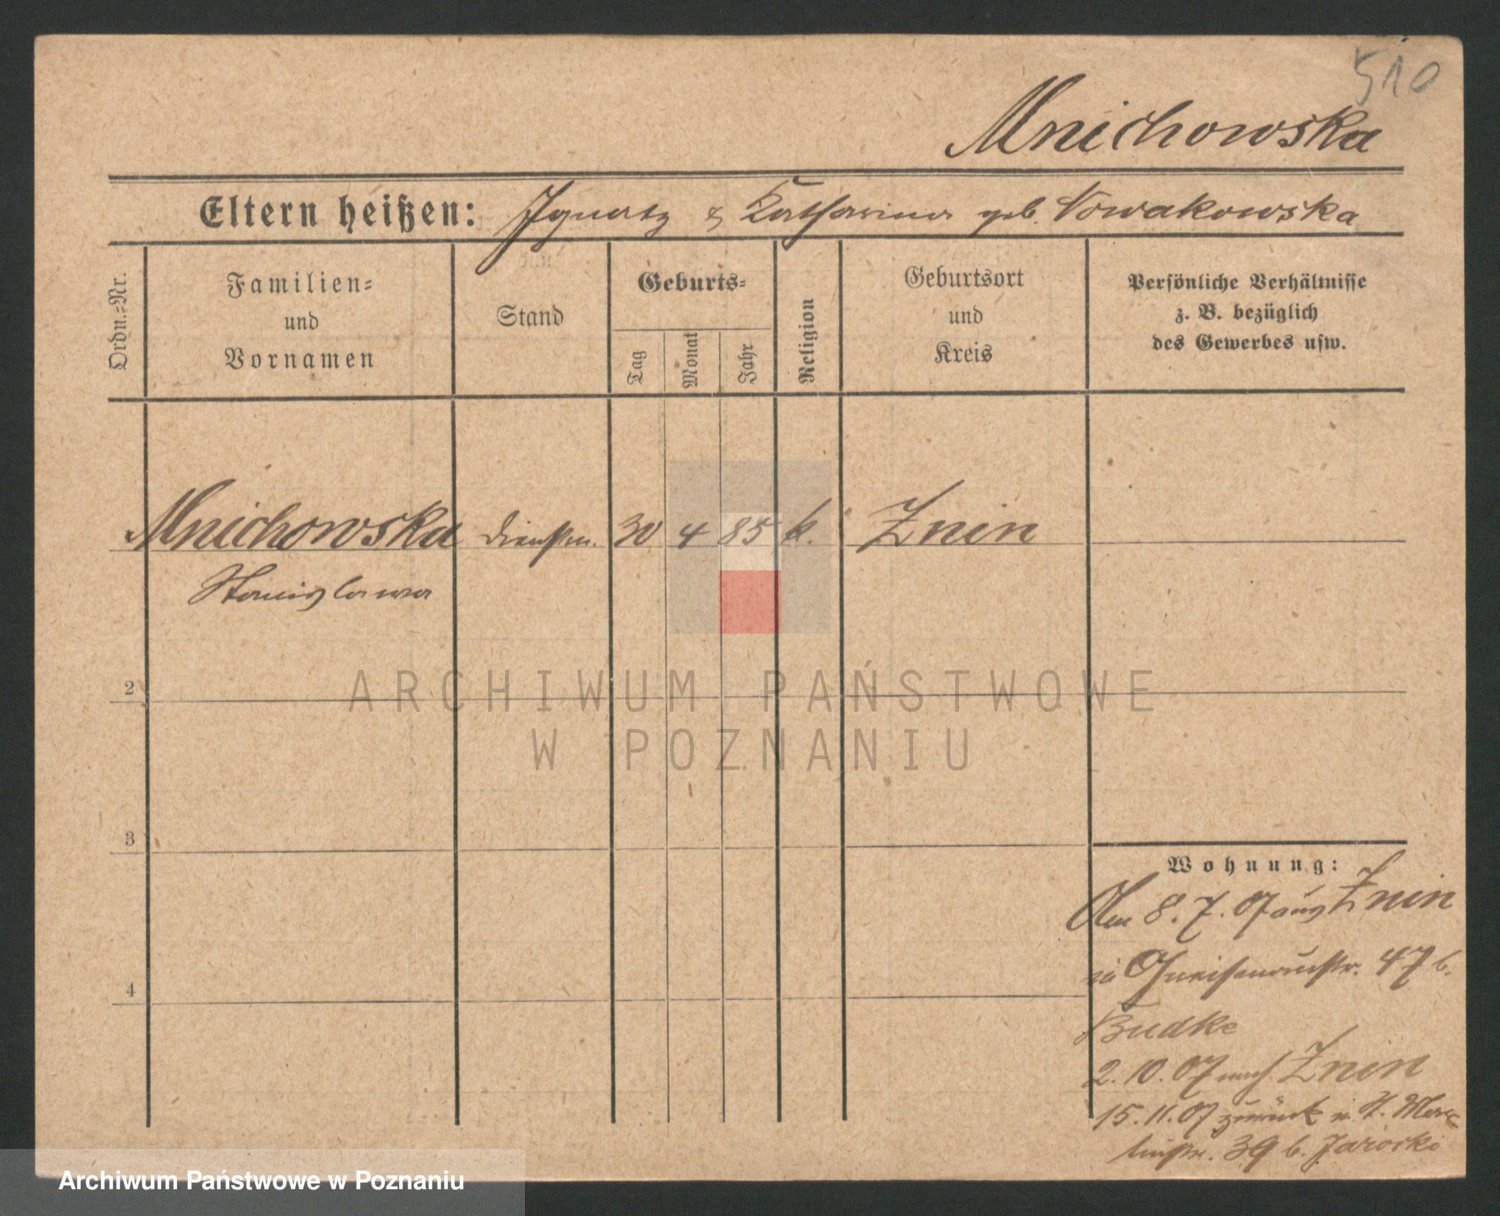 510
Mnichowska
Eltern heißen: Ignatz & Katharina geb. Nowakowska
Ordn.=Nr.
Familien=
und
Vornamen
Stand
Geburts=
Tag
Monat
Jahr
Religion
Geburtsort
und
Kreis
Persönliche Verhältnisse
z. B. bezüglich
des Gewerbes usw.
Mnichowska Dienstm. 30 4 85 k. Znin
Stanislawa
2
3
4
Wohnung:
Am 8. 7. 07 aus Znin
in Gneisenaustr. 47 b.
Budke
2. 10. 07 nach Znin
15. 11. 07 zurück n. St. Mar-
tinstr. 39 b. Jarocki
ARCHIWUM PAŃSTWOWE
W POZNANIU
Archiwum Państwowe w Poznaniu